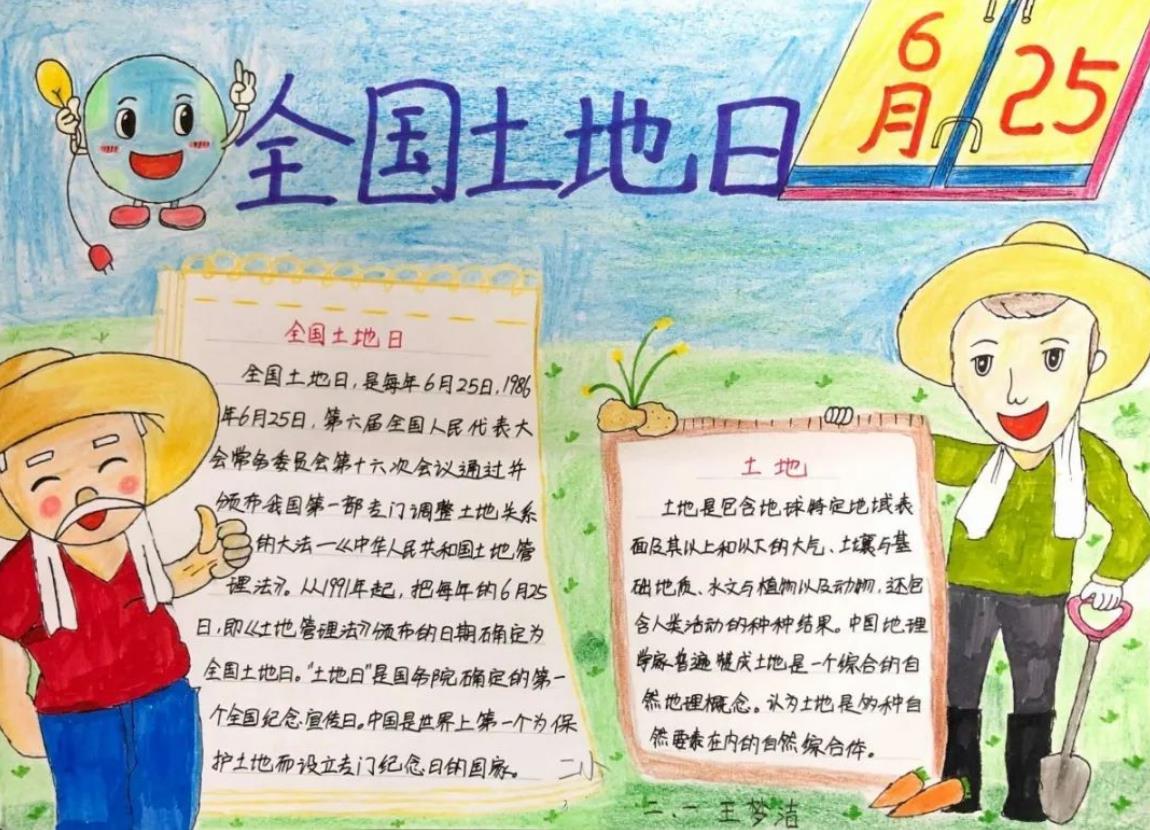 全国土地日
6
月
25
全国土地日
全国土地日,是每年6月25日,1986
年6月25日,第六届全国人民代表大
会常务委员会第十六次会议通过并
颁布我国第一部专门调整土地关系
的大法一《中华人民共和国土地管
理法》。从1991年起,把每年的6月25
日,即《土地管理法》颁布的日期确定为
全国土地日。"土地日"是国务院确定的第一
个全国纪念宣传日。中国是世界上第一个为保
护土地而设立专门纪念日的国家。
土地
土地是包含地球特定地域表
面及其以上和以下的大气、土壤与基
础地质、水文与植物以及动物,还包
含人类活动的种种结果。中国地理
学家普遍赞成土地是一个综合的自
然地理概念。认为土地是的种自
然要素在内的自然综合体。
二、一 王梦洁